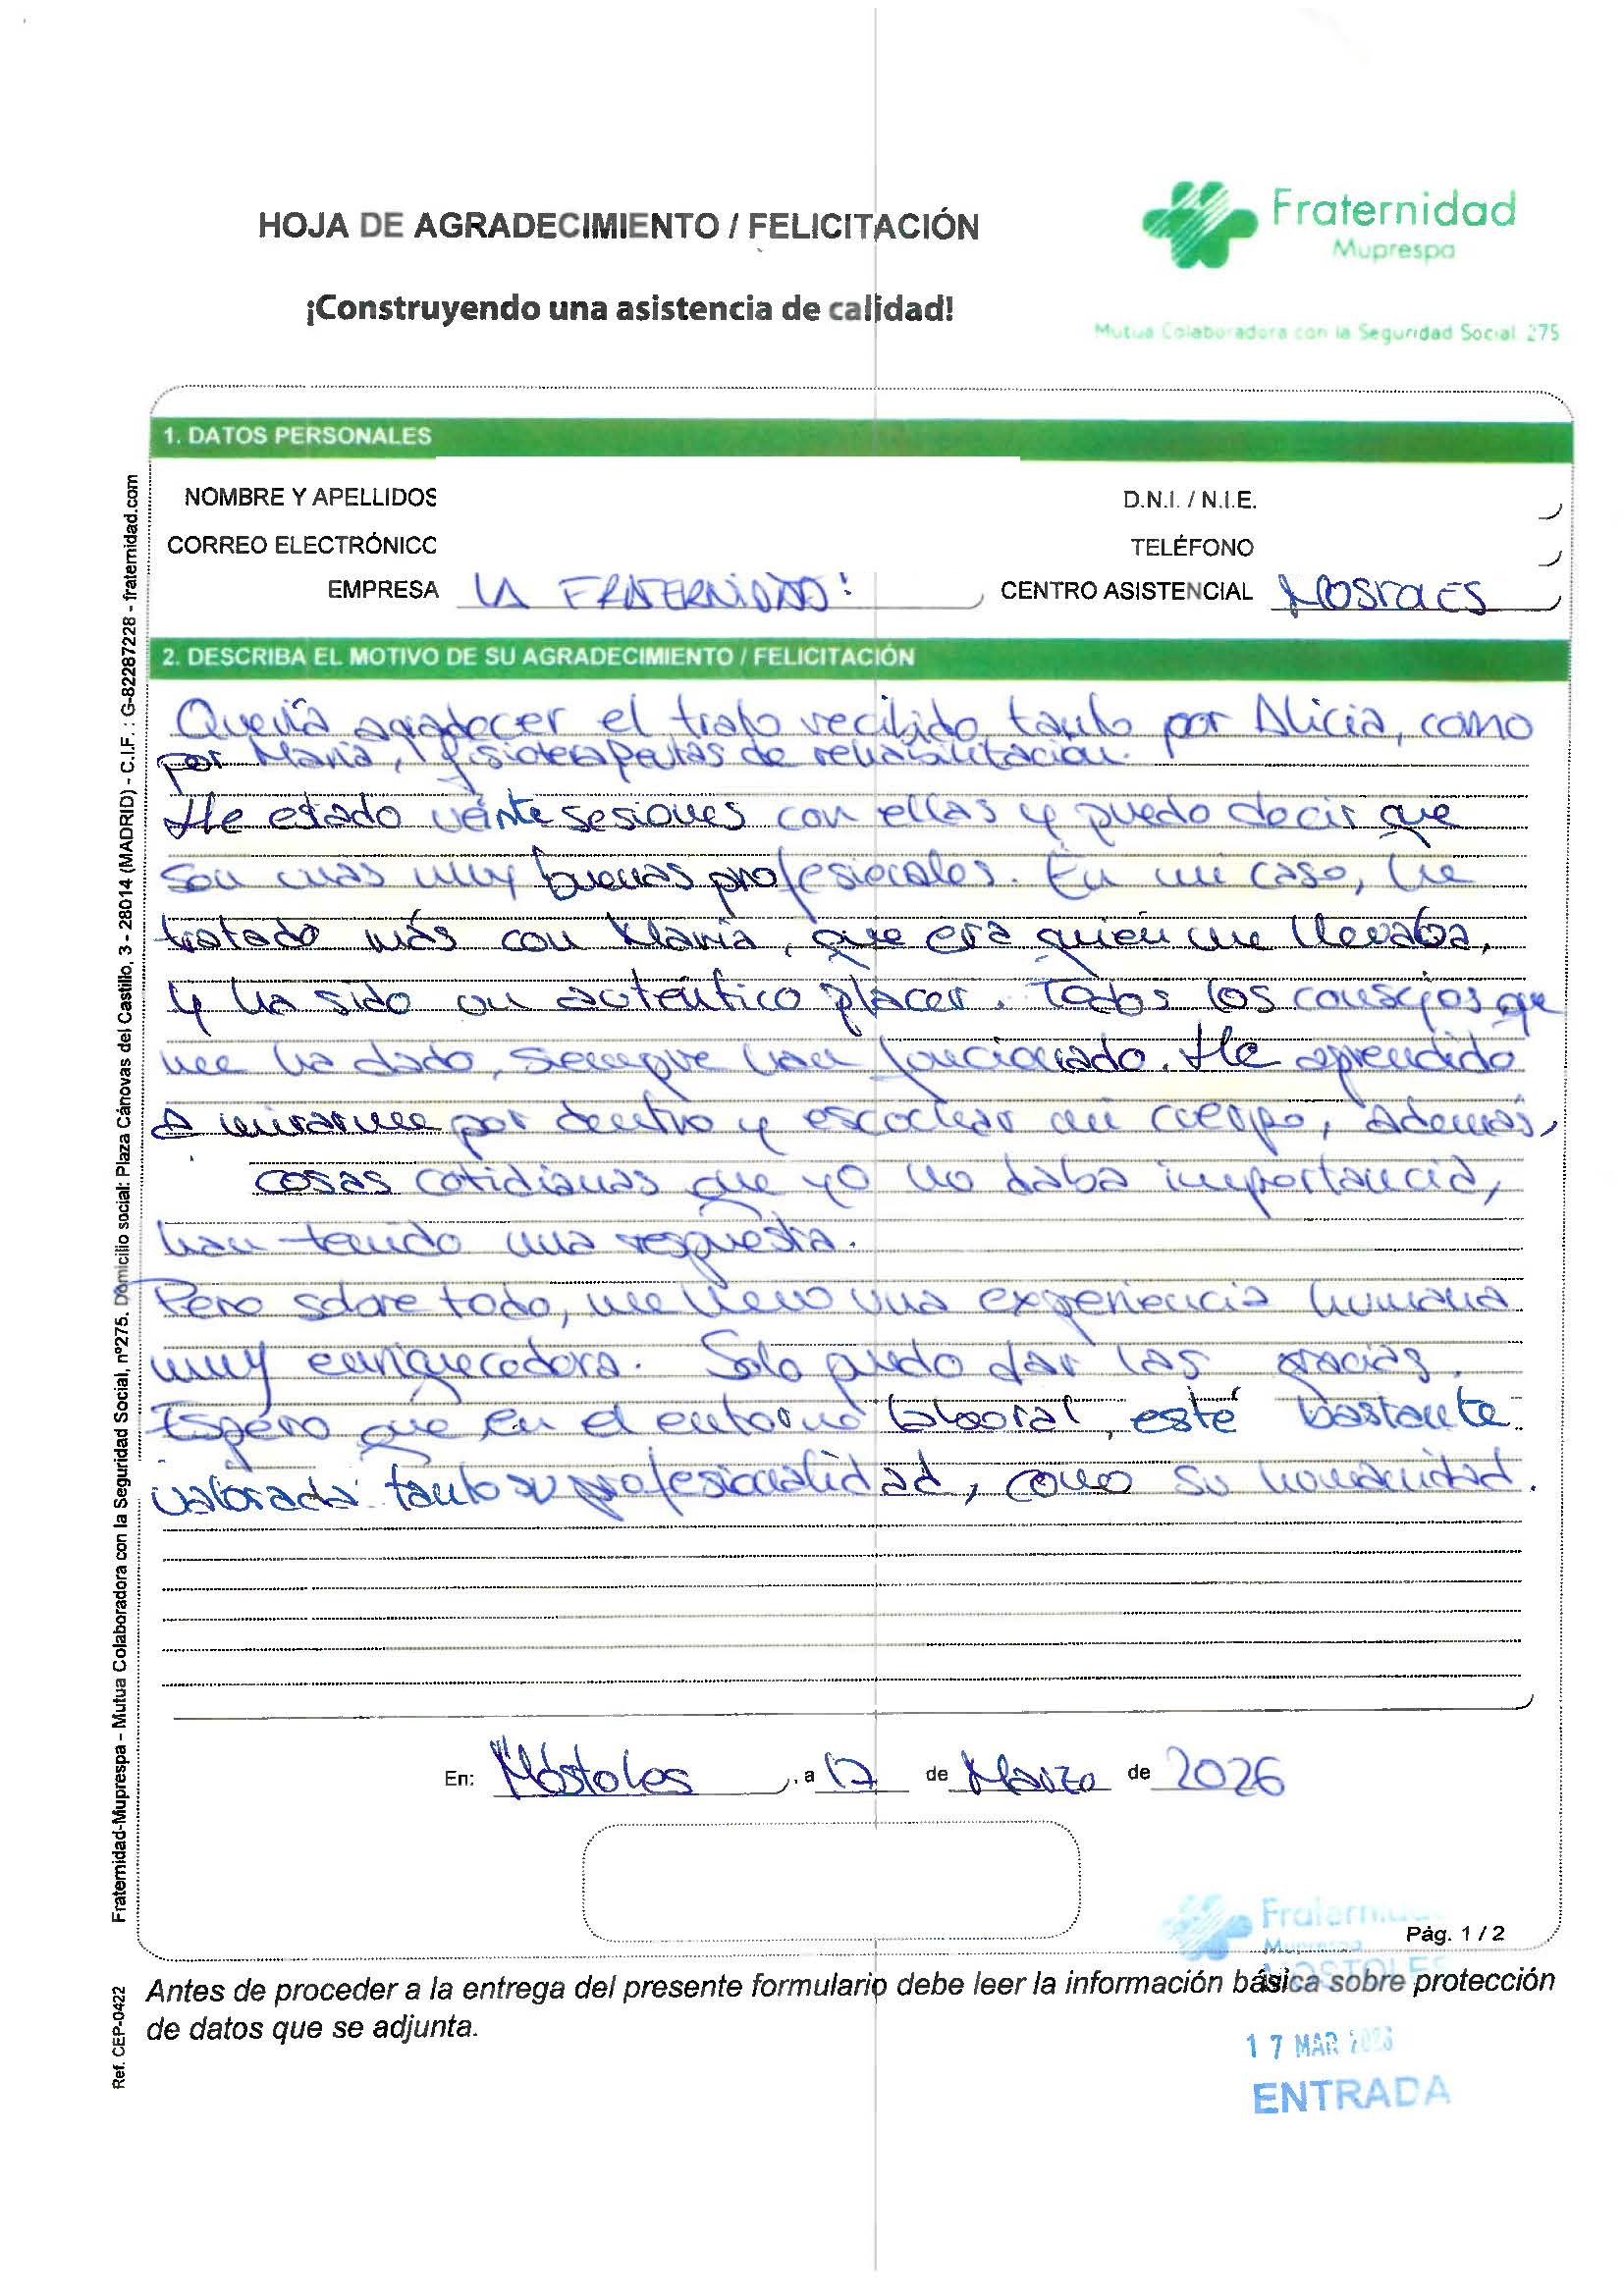 HOJA DE AGRADECIMIENTO / FELICITACIÓN
¡Construyendo una asistencia de calidad!
Fraternidad
Muprespa
Mutua Colaboradora con la Seguridad Social 275
1. DATOS PERSONALES
NOMBRE Y APELLIDOS
D.N.I. / N.I.E.
CORREO ELECTRÓNICO
TELÉFONO
EMPRESA LA FRATERNIDAD
CENTRO ASISTENCIAL
2. DESCRIBA EL MOTIVO DE SU AGRADECIMIENTO / FELICITACIÓN
Quería agradecer el trato recibido, tanto por Alicia, como
por María, fisioterapeutas de rehabilitación.
He estado veinte sesiones con ellas y puedo decir que
son unas muy buenas profesionales. En mi caso, he
tratado más con María, que era quien me llevaba,
y ha sido un auténtico placer. Todos los consejos que
me ha dado, siempre han funcionado. He aprendido
a mirarme por dentro y escuchar mi cuerpo, además,
cosas cotidianas que yo no daba importancia,
han tenido una respuesta.
Pero sobre todo, me llevo una experiencia humana
muy enriquecedora. Solo puedo dar las gracias.
Espero que en el entorno laboral, esté bastante
valorada tanto su profesionalidad, como su humanidad.
En: Móstoles, a 17 de Marzo de 2026
Fraternidad
Muprespa
MOSTOLES
Pág. 1 / 2
Antes de proceder a la entrega del presente formulario debe leer la información básica sobre protección
de datos que se adjunta.
17 MAR 2026
ENTRADA
Fraternidad-Muprespa - Mutua Colaboradora con la Seguridad Social, nº275. Domicilio social: Plaza Cánovas del Castillo, 3 - 28014 (MADRID) - C.I.F. : G-82287228 - fraternidad.com
Ref. CEP-0422